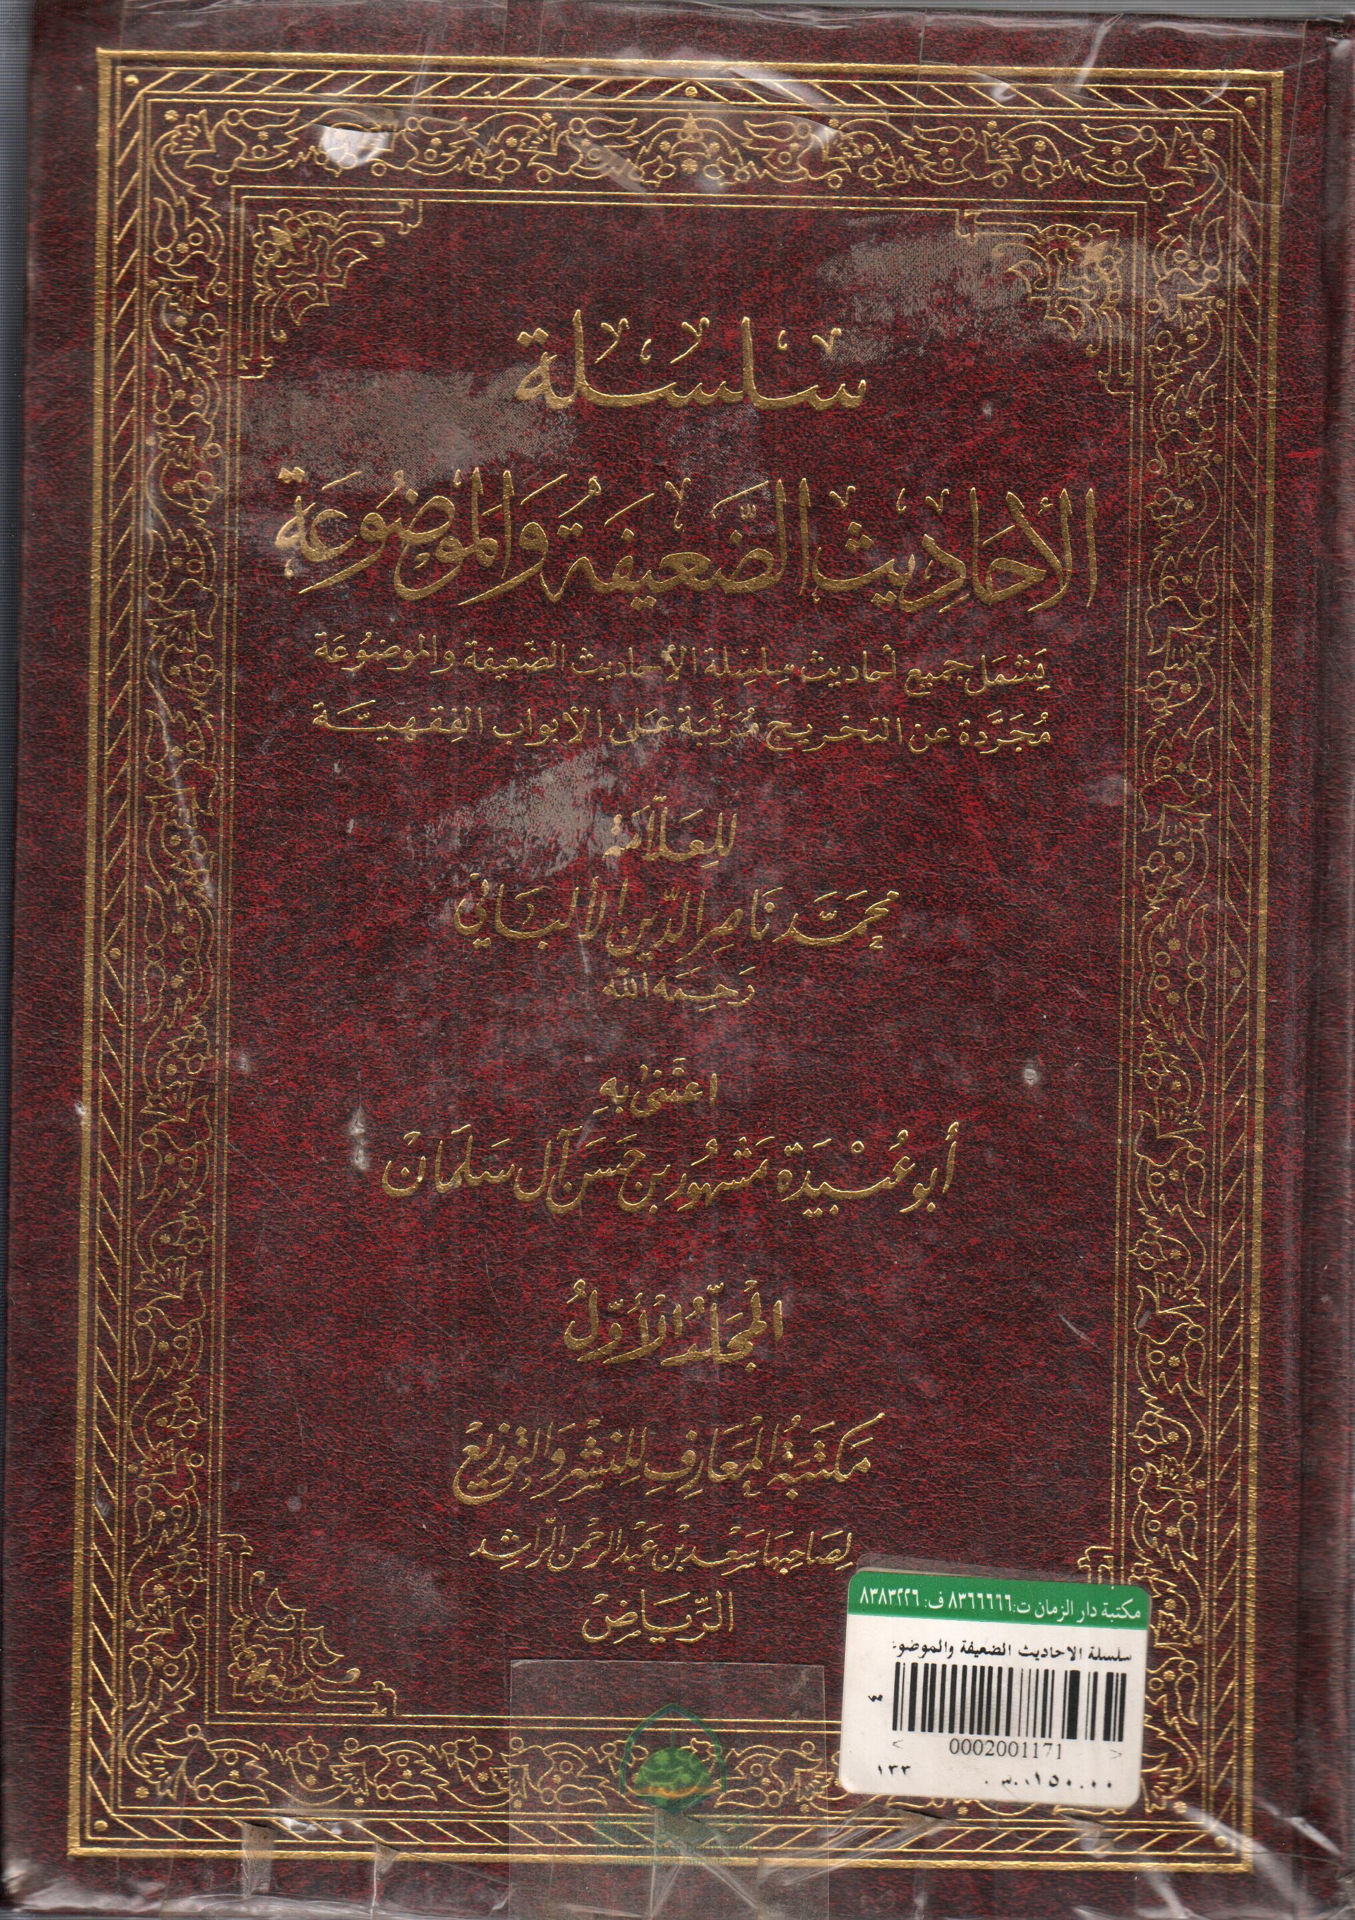 سلسلة
الأحاديث الضَّعيفَة والموضُوعَة
يَشمَل جميع أحاديث سِلسِلة الأحاديث الضّعيفة والموضُوعَة
مُجَرَّدة عن التخريج مُرَتَّبة عَلى الأبواب الفِقهيّة
للعَلّامة
محمَّد نَاصِر الدِّين الألبَاني
رَحِمَه الله
اعتَنى بِهِ
أبو عُبَيْدَة مَشهُور بن حَسَن آل سَلمَان
المجلّدُ الأوّلُ
مَكتَبَةُ المَعَارِف لِلنشْر وَالتوزيعْ
لِصَاحِبهَا سَعد بن عَبد الرحمن الراشِد
الريَاضْ
مكتبة دار الزمان ت:٨٣٦٦٦٦٦ ف: ٨٣٨٣٢٢٦
سلسلة الاحاديث الضعيفة والموضو
0002001171
١٣٣
١٥٠.٠٠